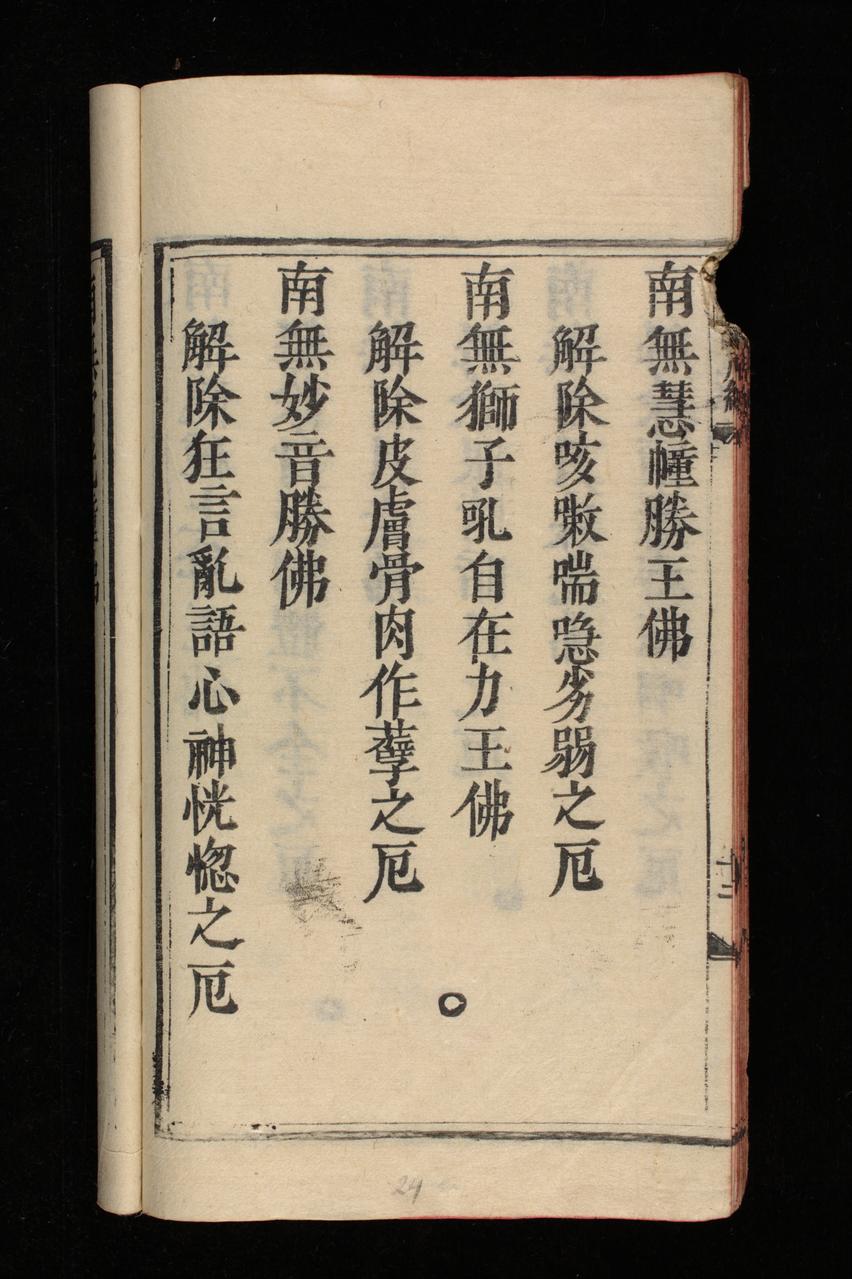 南無慧幢勝王佛
解除咳嗽喘急劣弱之厄
南無獅子吼自在力王佛
解除皮膚骨肉作孽之厄
南無妙音勝佛
解除狂言亂語心神恍惚之厄
十二
24